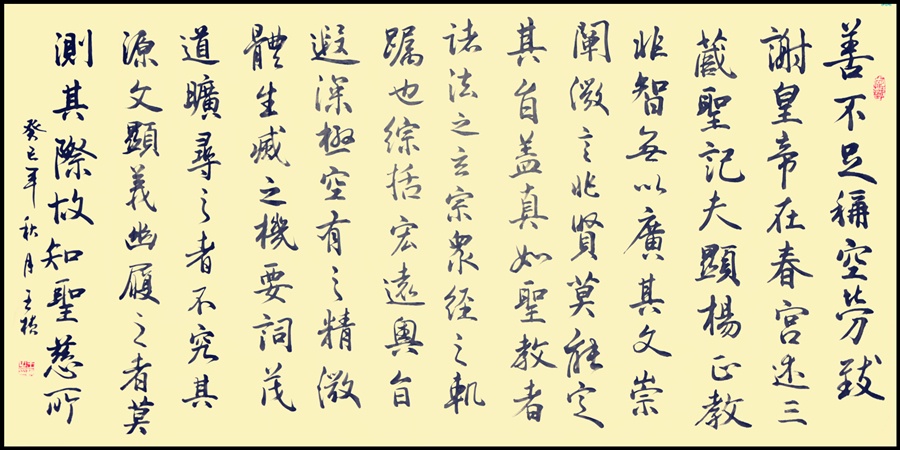 善不足稱空勞致
謝皇帝在春宮述三
藏聖記夫顯楊正教
非智無以廣其文崇
闡微言非賢莫能定
其旨盖真如聖教者
諸法之玄宗眾經之軌
躅也綜括宏遠奧旨
遐深極空有之精微
體生滅之機要詞茂
道曠尋之者不究其
源文顯義幽履之者莫
測其際故知聖慈所
癸巳年秋月王